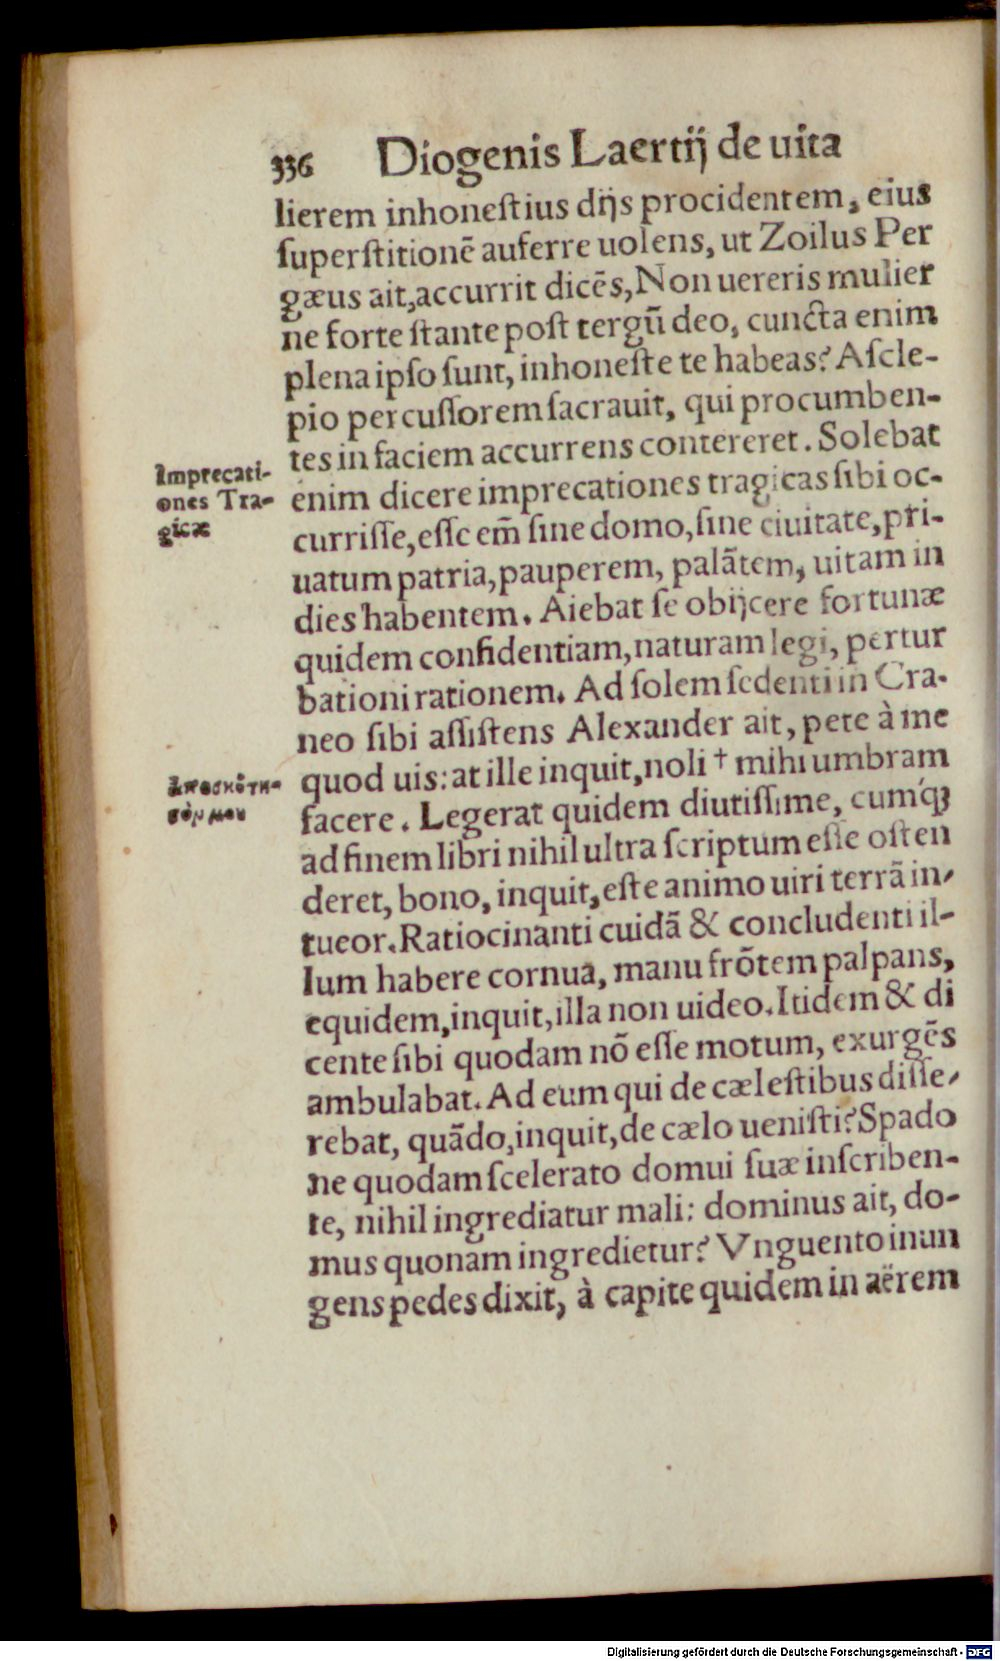 336 Diogenis Laertij de uita
lierem inhonestius dijs procidentem, eius
superstitionē auferre uolens, ut Zoilus Per
gæus ait, accurrit dicēs, Non uereris mulier
ne forte stante post tergū deo, cuncta enim
plena ipso sunt, inhoneste te habeas? Ascle-
pio percussorem sacrauit, qui procumben-
tes in faciem accurrens contereret. Solebat
enim dicere imprecationes tragicas sibi oc-
currisse, esse em̃ sine domo, sine ciuitate, pri-
uatum patria, pauperem, palātem, uitam in
dies habentem. Aiebat se obijcere fortunæ
quidem confidentiam, naturam legi, pertur
bationi rationem. Ad solem sedenti in Cra-
neo sibi assistens Alexander ait, pete à me
quod uis: at ille inquit, noli † mihi umbram
facere. Legerat quidem diutissime, cumq́;
ad finem libri nihil ultra scriptum esse osten
deret, bono, inquit, este animo uiri terrā in-
tueor. Ratiocinanti cuidā & concludenti il-
lum habere cornua, manu frōtem palpans,
equidem, inquit, illa non uideo. Itidem & di
cente sibi quodam nō esse motum, exurgēs
ambulabat. Ad eum qui de cælestibus disse-
rebat, quādo, inquit, de cælo uenisti? Spado
ne quodam scelerato domui suæ inscriben-
te, nihil ingrediatur mali: dominus ait, do-
mus quonam ingredietur? Vnguento inun
gens pedes dixit, à capite quidem in aërem
Imprecati-
ones Tra-
gicæ
ἀποσκότη-
σόν μου
Digitalisierung gefördert durch die Deutsche Forschungsgemeinschaft - DFG